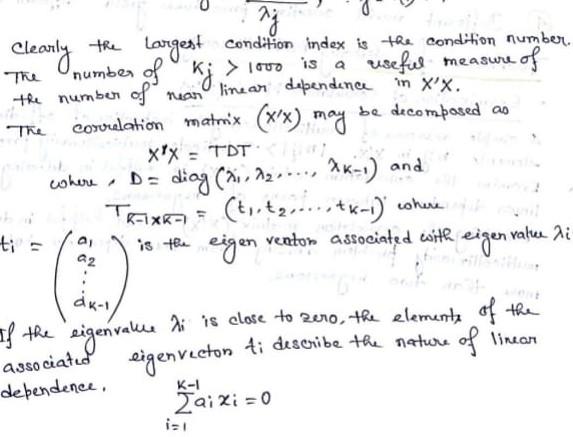 λj
Clearly the largest condition index is the condition number.
The number of Kj > 1000 is a useful measure of
the number of near linear dependence in X'X.
The correlation matrix (X'X) may be decomposed as
X'X = TDT
where, D = diag (λ1, λ2....., λK-1) and
TK-1xK-1 = (t1, t2....., tK-1) where
ti = (a1 a2 ⋮ aK-1) is the eigen vector associated with eigen value λi
If the eigenvalue λi is close to zero, the elements of the
associated eigenvector ti describe the nature of linear
dependence.
K-1
Σ ai xi = 0
i=1